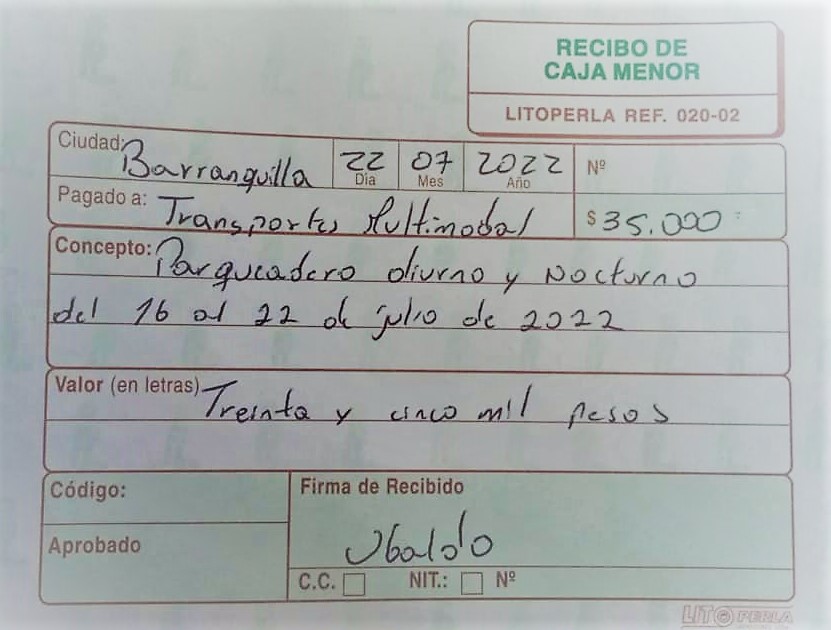 RECIBO DE
CAJA MENOR
LITOPERLA REF. 020-02
Ciudad: Barranquilla 22 07 2022 Nº
Día Mes Año
Pagado a: Transportes Multimodal $ 35.000
Concepto: Parqueadero diurno y Nocturno
del 16 al 22 de julio de 2022
Valor (en letras) Treinta y cinco mil pesos
Código:
Firma de Recibido
Aprobado
Ubaldo
C.C. NIT.: Nº
LITOPERLA